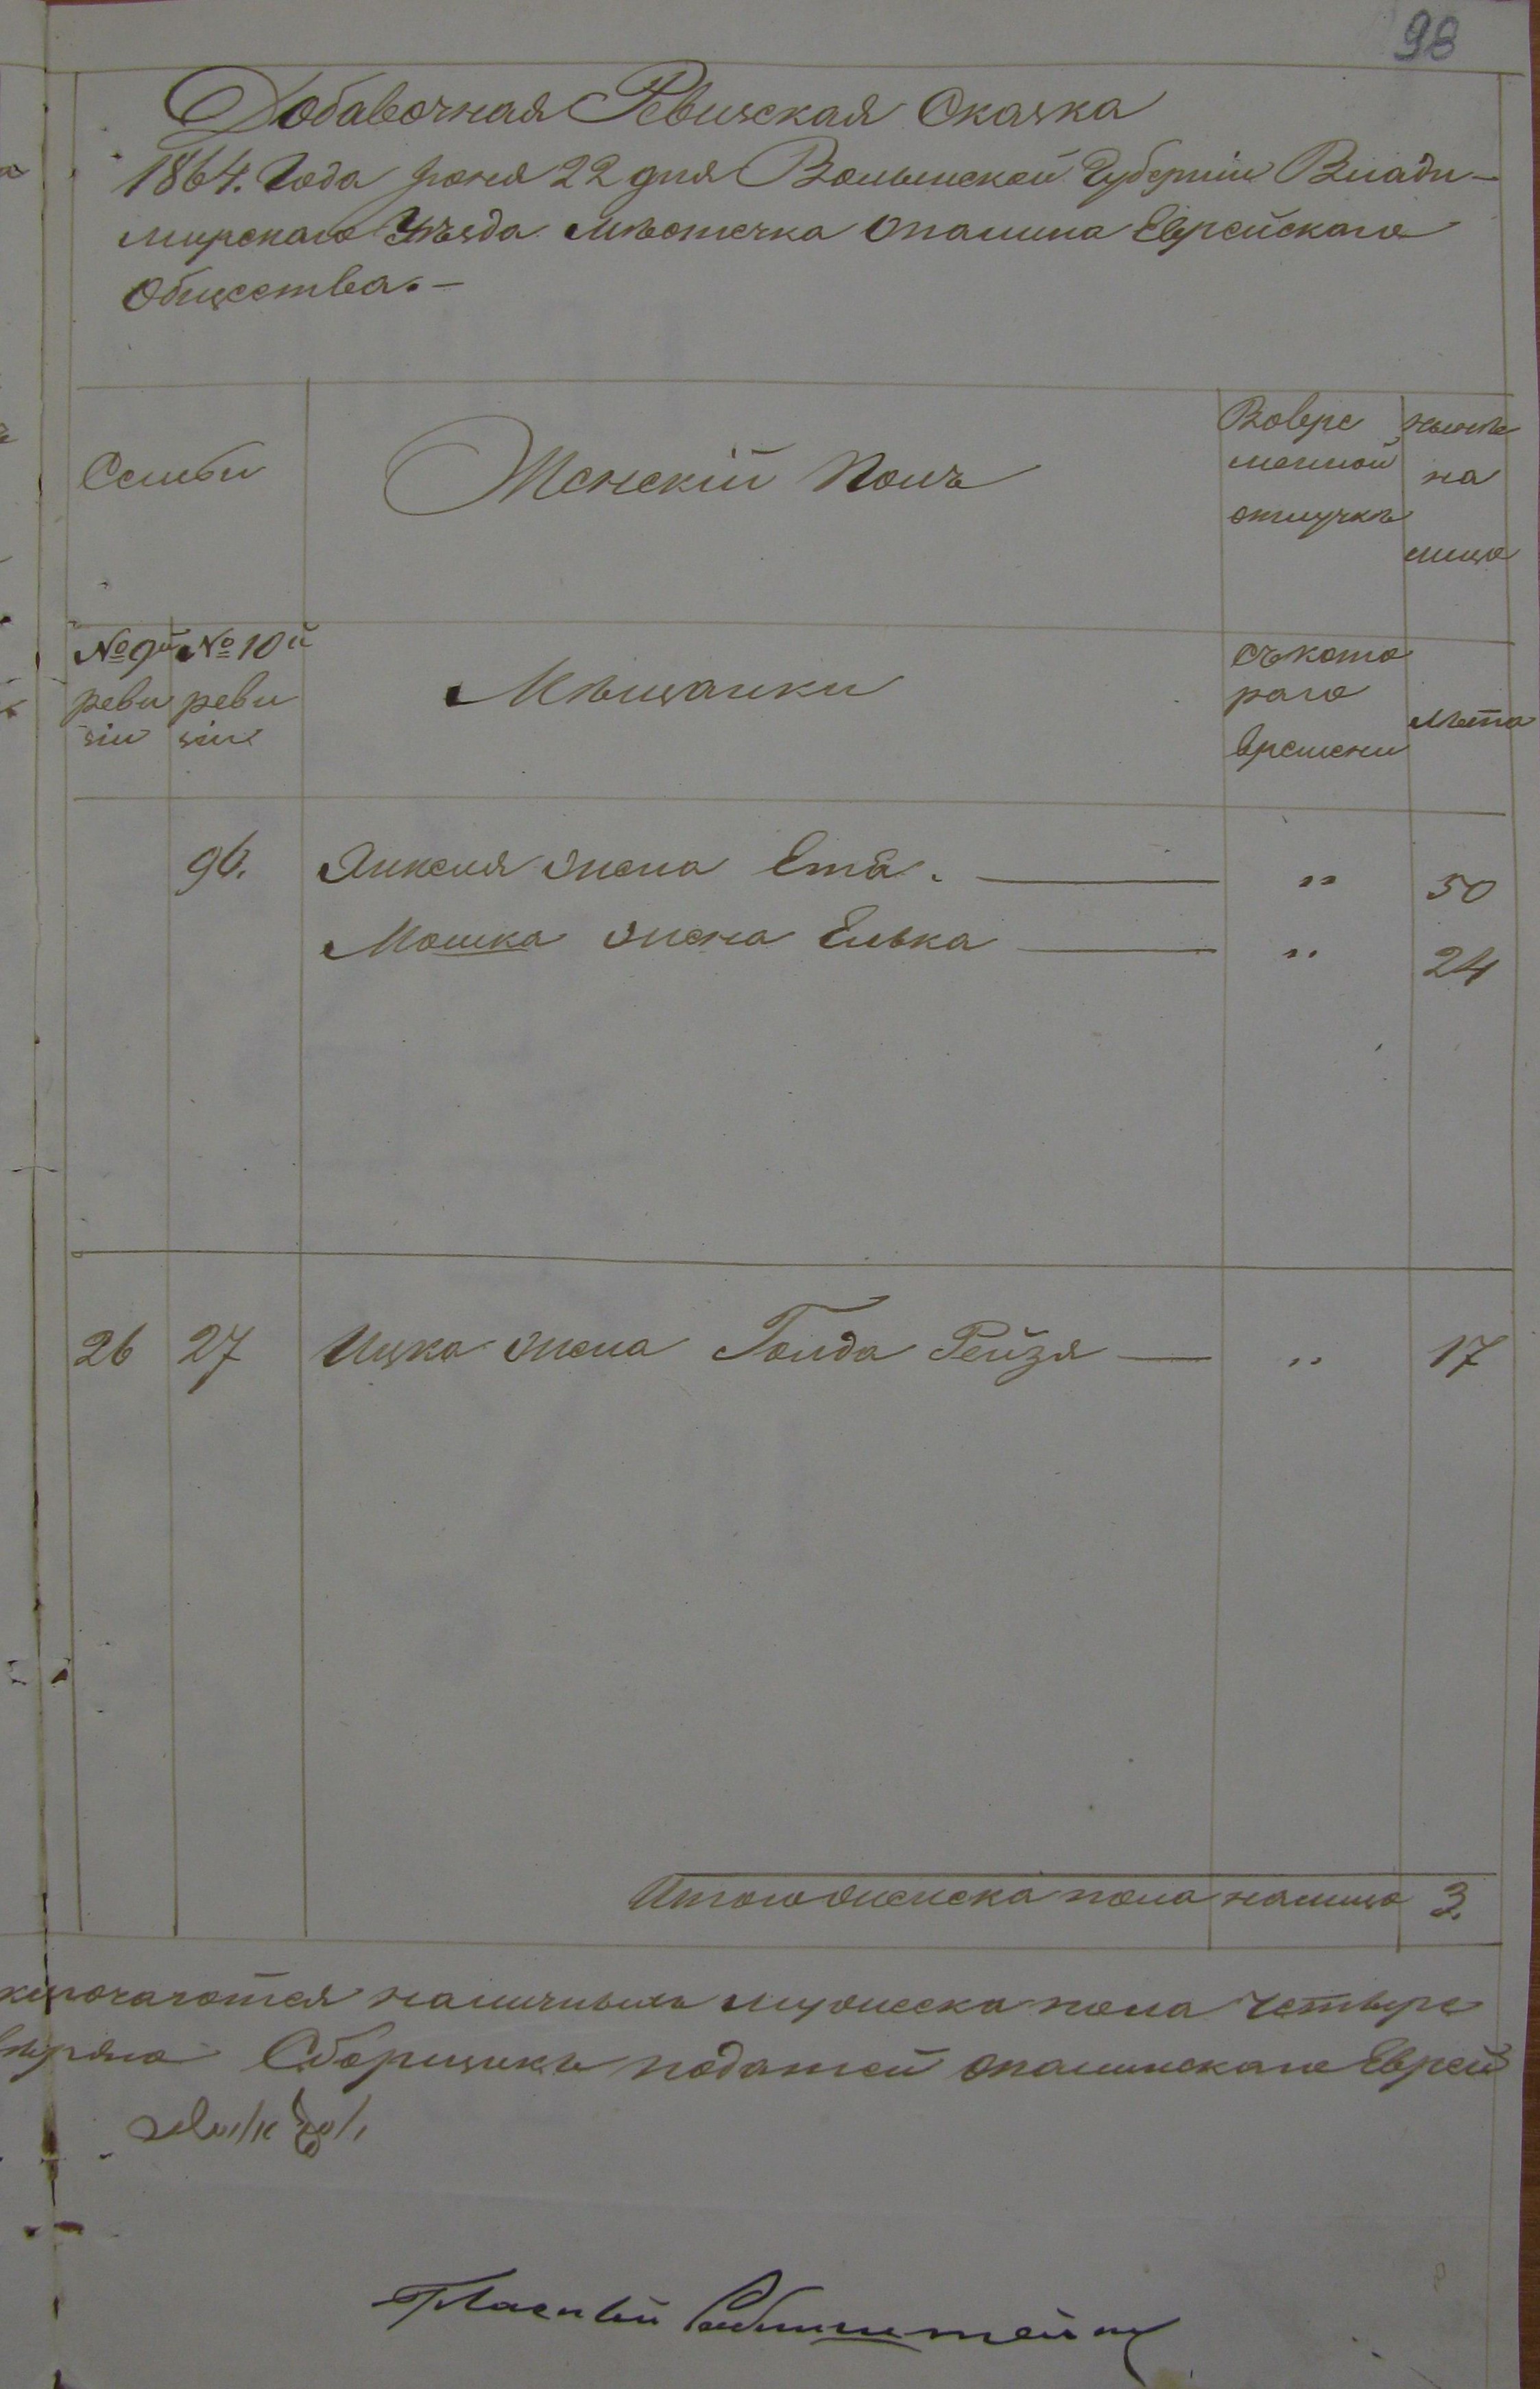 98
Добавочная Ревизская Сказка
1864. Года Іюня 22 дня Волынской Губерніи Влади-
мирскаго Уѣзда Мѣстечка Опалина Еврейскаго
Общества.-
Семьи
Женскій Полъ
Вовре
менной
отлучкѣ
нынѣ
на
лицо
№ 9й
реви
зіи
№ 10й
реви
зіи
Мѣщанки
съ кото
раго
времени
Лѣта
96. Янкеля жена Ета. — „ 50
Мошка жена Елька — „ 24
26 27 Ицка жена Голда Рейзя — „ 17
Итого женска пола налицо 3.
ключаются наличныхъ мужеска пола четыре
Сборщикъ податей Опалинскаго Еврей
Гласный